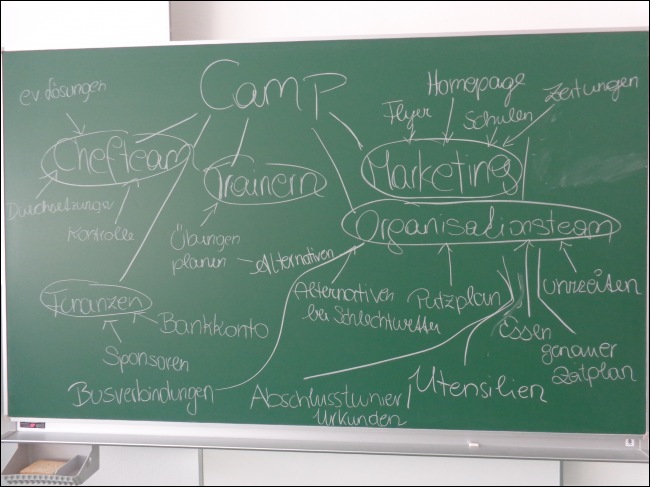 Camp
ev Lösungen
Homepage
Zeitungen
Flyer
Schulen
Chefteam
Trainern
Marketing
Durchsetzung
Kontrolle
Organisationsteam
Übungen
planen
Alternativen
Finanzen
Bankkonto
Sponsoren
Busverbindungen
Alternativen
bei Schlechtwetter
Putzplan
Uhrzeiten
Essen
genauer
Zeitplan
Abschlussturnier/
Urkunden
Utensilien